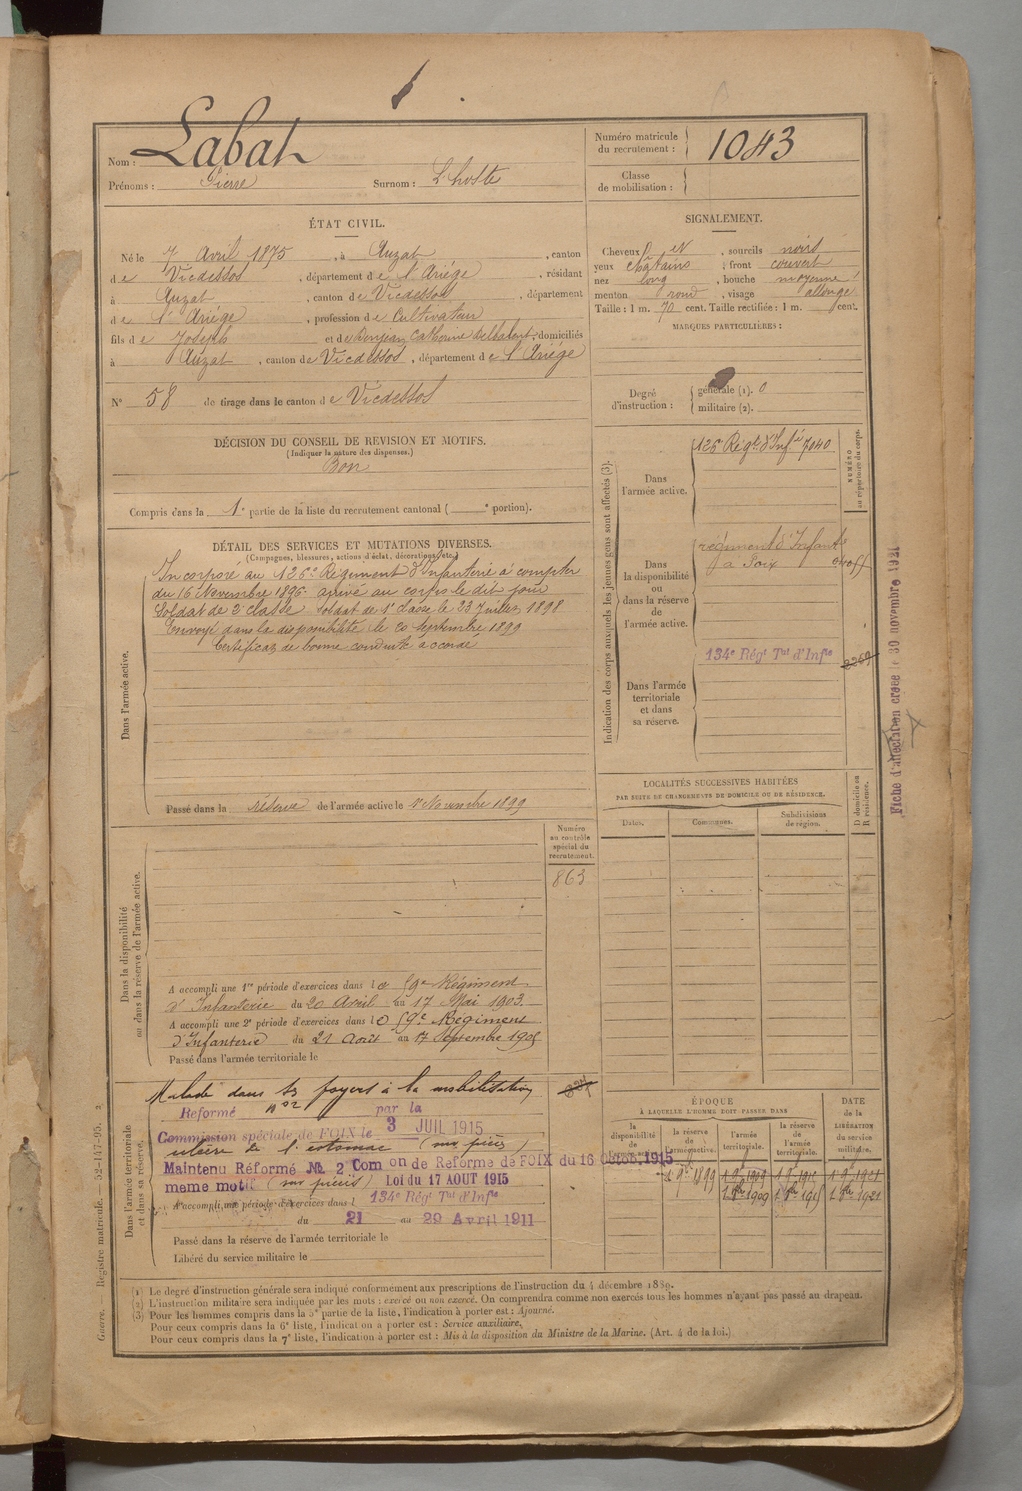 Nom : Labat
Prénoms : Pierre Surnom : L'hoste
Numéro matricule du recrutement : 1043
Classe de mobilisation :
ÉTAT CIVIL.
Né le 7 Avril 1875, à Auzat, canton
de Vicdessos, département de l'Ariége, résidant
à Auzat, canton de Vicdessos, département
de l'Ariége, profession de Cultivateur
fils de Joseph et de Denjean Catherine, domiciliés
à Auzat, canton de Vicdessos, département de l'Ariége
N° 58 de tirage dans le canton de Vicdessos
SIGNALEMENT.
Cheveux et, sourcils noirs
yeux châtains, front couvert
nez long, bouche moyenne
menton rond, visage allongé
Taille : 1 m. 70 cent. Taille rectifiée : 1 m. cent.
MARQUES PARTICULIÈRES :
Degré d'instruction : générale (1). 0
militaire (2).
DÉCISION DU CONSEIL DE REVISION ET MOTIFS.
(Indiquer la nature des dispenses.)
Bon
Compris dans la 1e partie de la liste du recrutement cantonal ( e portion).
DÉTAIL DES SERVICES ET MUTATIONS DIVERSES.
(Campagnes, blessures, actions d'éclat, décorations, etc.)
Dans l'armée active.
Incorporé au 126e Régiment d'Infanterie à compter
du 16 Novembre 1896 arrivé au corps le dit jour
Soldat de 2e classe Soldat de 1e classe le 23 Juillet 1898
Envoyé dans la disponibilité le 20 Septembre 1899
Certificat de bonne conduite accordé
Passé dans la réserve de l'armée active le 1r Novembre 1899
Indication des corps auxquels les jeunes gens sont affectés (3).
NUMÉRO au répertoire du corps.
Dans l'armée active.
126e Régt d'Infie 7040
Dans la disponibilité ou dans la réserve de l'armée active.
régiment d'Infantie
à Foix
Dans l'armée territoriale et dans sa réserve.
134e Régt Tal d'Infie 2269
Fiche d'affectation créée le 30 novembre 1921
LOCALITÉS SUCCESSIVES HABITÉES
PAR SUITE DE CHANGEMENTS DE DOMICILE OU DE RÉSIDENCE.
Dates.
Communes.
Subdivisions de région.
D domicile ou R résidence.
Dans la disponibilité ou dans la réserve de l'armée active.
Numéro au contrôle spécial du recrutement.
863
A accompli une 1re période d'exercices dans le 59e Régiment
d'Infanterie du 20 Avril au 17 Mai 1903
A accompli une 2e période d'exercices dans le 59e Régiment
d'Infanterie du 21 Août au 17 Septembre 1905
Passé dans l'armée territoriale le
Dans l'armée territoriale et dans sa réserve.
Malade dans ses foyers à la mobilisation
Reformé n°2 par la
Commission spéciale de FOIX le 3 JUIL 1915
ulcère de l'estomac (sur pièces)
Maintenu Réformé № 2 Com on de Reforme de FOIX du 16 Octob. 1915
meme motif (sur pièces) Loi du 17 AOUT 1915
A accompli une période d'exercices dans l 134e Régt Tal d'Infie
du 21 au 29 Avril 1911
Passé dans la réserve de l'armée territoriale le
Libéré du service militaire le
ÉPOQUE
À LAQUELLE L'HOMME DOIT PASSER DANS
la disponibilité de l'armée active.
la réserve de l'armée active.
l'armée territoriale.
la réserve de l'armée territoriale.
DATE de la LIBÉRATION du service militaire.
1 9bre 1899
1 9bre 1909
1 9bre 1915
1 9bre 1921
1 8bre 1909
1 8bre 1915
1 8bre 1921
(1) Le degré d'instruction générale sera indiqué conformément aux prescriptions de l'instruction du 4 décembre 1889.
(2) L'instruction militaire sera indiquée par les mots : exercé ou non exercé. On comprendra comme non exercés tous les hommes n'ayant pas passé au drapeau.
(3) Pour les hommes compris dans la 5e partie de la liste, l'indication à porter est : Ajourné.
Pour ceux compris dans la 6e liste, l'indication à porter est : Service auxiliaire,
Pour ceux compris dans la 7e liste, l'indication à porter est : Mis à la disposition du Ministre de la Marine. (Art. 4 de la loi.)
Guerre. — Registre matricule. — 52-147-95. 2